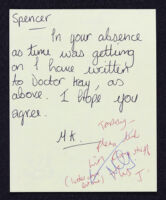 Spencer
In your absence
as time was getting
on I have written
to Doctor Kay, as
above. I hope you
agree.
M.K.
Tommy -
Please